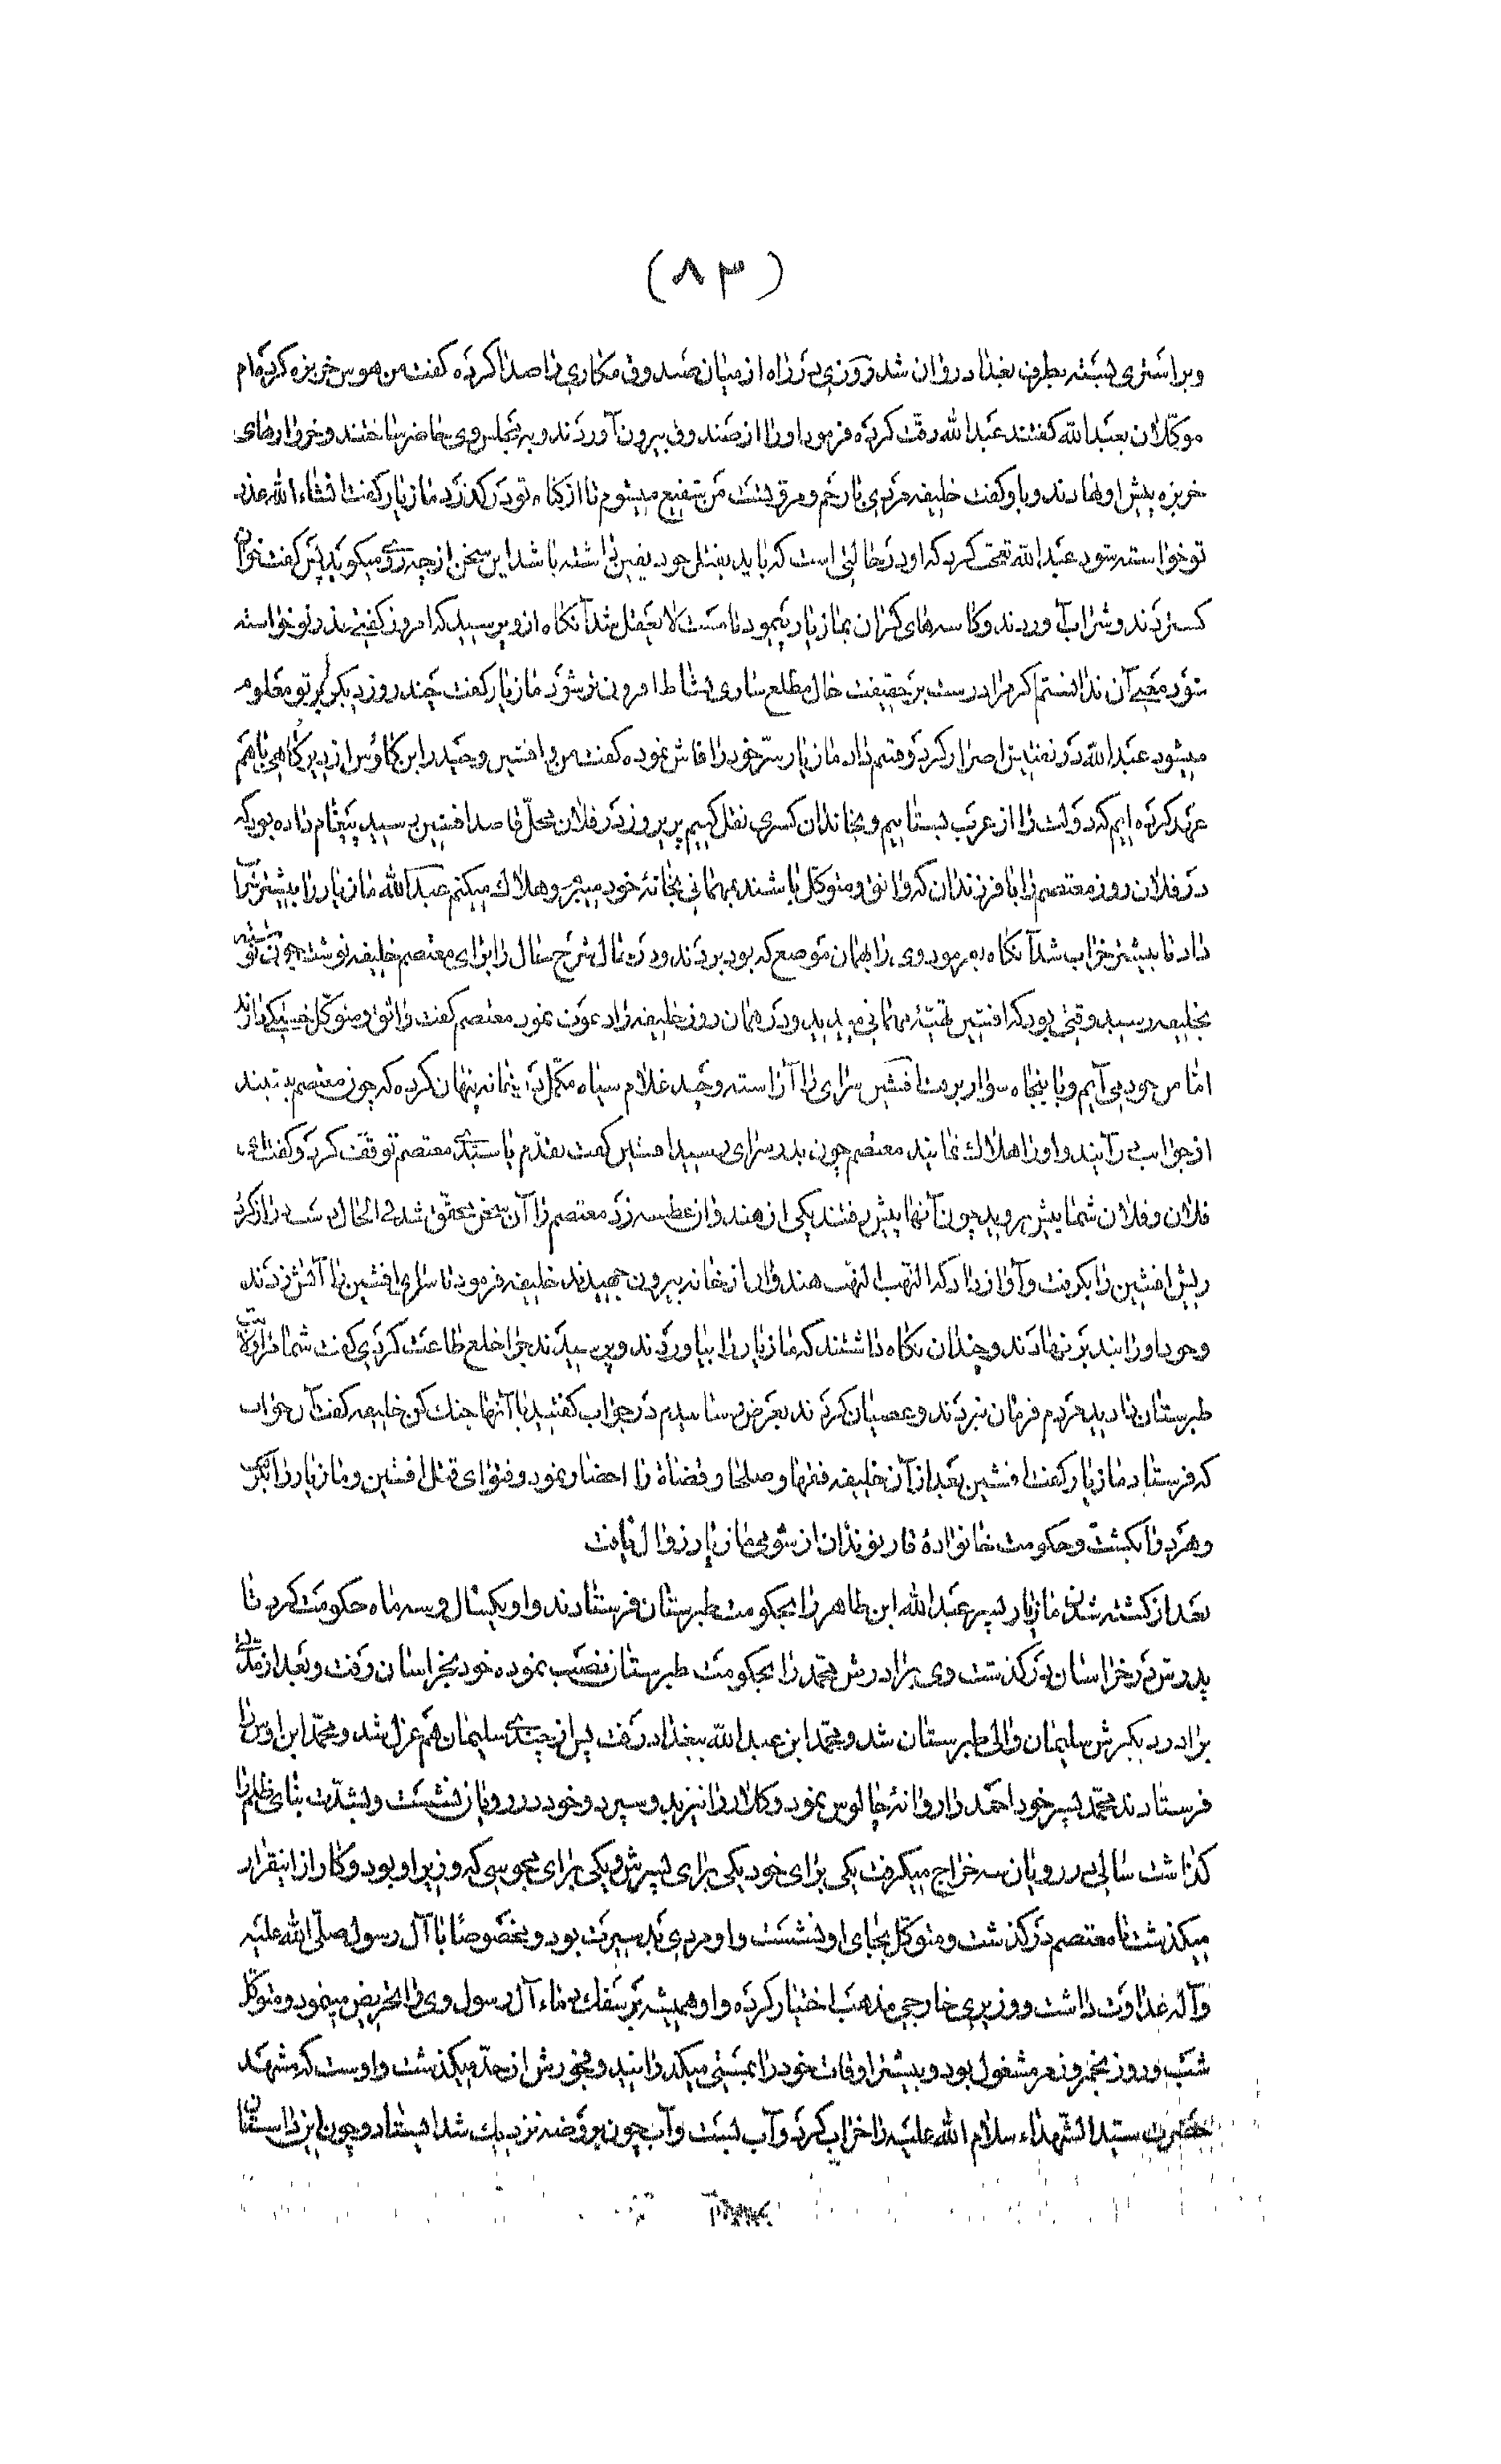 (۸۳)
و براستری بسته بطرف بغداد روان شد روزی در راه از میان صندوق مکاری را صدا کرده کفت من هوس خربزه کرده‌ام
موکلان بعبد الله کفتند عبد الله رقت کرده فرمود او را از صندوق بیرون آوردند و به مجلس وی حاضر ساختند و خروارهای
خربزه پیش او نهادند و با و کفت خلیفه مردی با رحم و مروتست من شفیع میشوم تا از کناه تو در کذرد مازیار کفت انشاء الله عذر
تو خواسته شود عبد الله تعجب کرد که او در حالتی است که باید بقتل خود یقین داشته باشد این سخن از چه روی میکوید پس کفت خوان
کستردند و شراب آوردند و کاسه‌های کران بمازیار پیمود تا مست لا یعقل شد آنکاه از وی پرسید که امروز کفتی عذر تو خواسته
شود معنی آن ندانستم اکر مرا درست بر حقیقت حال مطلع سازی نشاط افزون تر شود مازیار کفت چند روز دیکر بر تو معلوم
میشود عبد الله در تفتیش اصرار کرد و قسم داد مازیار سر خود را فاش نموده کفت من و افشین و حیدر ابن کاوس از دیر کاهی باهم
عهد کرده‌ایم که دولت را از عرب بستانیم و بخاندان کسری نقل کنیم پریروز در فلان محل قاصد افشین رسید پیغام داده بود که
در فلان روز معتصم را با فرزندان که واثق و متوکل باشند بمهمانی بخانهٔ خود میبرم و هلاک میکنم عبد الله مازیار را بیشتر شراب
داد تا بیشتر خراب شد آنکاه فرمود وی را بهمان موضع که بود بردند و در حال شرح حال را برای معتصم خلیفه نوشت چون نوشته
بخلیفه رسید وقتی بود که افشین تهیهٔ مهمانی میدید و در همان روز خلیفه را دعوت نمود معتصم کفت واثق و متوکل
اما من خود می آیم و با پنجاه سوار برفت افشین سرای را آراسته و چند غلام سیاه مکمل در خانه پنهان کرده که چون معتصم بنشیند
از جوانب در آیند و او را هلاک نمایند معتصم چون بدر سرای رسید افشین کفت تقدم یا سیدی معتصم توقف کرد و کفت ای
فلان و فلان شما پیش بروید چون آنها پیش رفتند یکی از هندوان عطسه زد معتصم را آن سخن محقق شد فی الحال دست دراز کرد
ریش افشین را بکرفت و آواز داد که النهب النهب هندوان از خانه بیرون جهیدند خلیفه فرمود تا سرای افشین را آتش زدند
و خود او را بند بر نهادند و چندان نکاه داشتند که مازیار را بیاوردند و پرسیدند چرا خلع طاعت کردی کفت شما مرا ولایت
طبرستان دادید مردم فرمان نبردند و عصیان کردند بعرض رسانیدم در جواب کفتید با آنها جنک کن خلیفه کفت آن جواب
که فرستاد مازیار کفت افشین بعد از آن خلیفه فقها و صلحا و قضاة را احضار نمود و فتوای قتل افشین و مازیار را بکرفت
و هر دو را بکشت و حکومت خانوادهٔ قارنوندان از شومی مازیار زوال یافت
بعد از کشته شدن مازیار پسر عبد الله ابن طاهر را بحکومت طبرستان فرستادند و او یکسال و سه ماه حکومت کرد تا
پدرش در خراسان در کذشت وی برادرش محمد را بحکومت طبرستان نصب نموده خود بخراسان رفت و بعد از مدتی
برادر دیکرش سلیمان والی طبرستان شد و محمد ابن عبد الله ببغداد رفت پس از چندی سلیمان هم عزل شد و محمد ابن اوس را
فرستادند محمد پسر خود احمد را روانهٔ چالوس نمود و کلار را نیز بدو سپرد و خود در رویان نشست و بشدت بنای ظلم را
کذاشت سالی در رویان سه خراج میکرفت یکی برای خود یکی برای پسرش و یکی برای مجوسی که وزیر او بود و کار از اینقرار
میکذشت تا معتصم در کذشت و متوکل بجای او نشست و او مردی بد سیرت بود و بخصوصا با آل رسول صلی الله علیه
و آله عداوت داشت و وزیری خارجی مذهب اختیار کرده و او همیشه بر سفک دماء آل رسول وی را تحریص مینمود و متوکل
شب و روز بخمر و زمر مشغول بود و بیشتر اوقات خود را بمستی میکذرانید و فجورش از حد میکذشت و اوست که مشهد
حضرت سید الشهداء سلام الله علیه را خراب کرد و آب بست و آب چون بروضه نزدیک شد ایستاد و چون این داستان